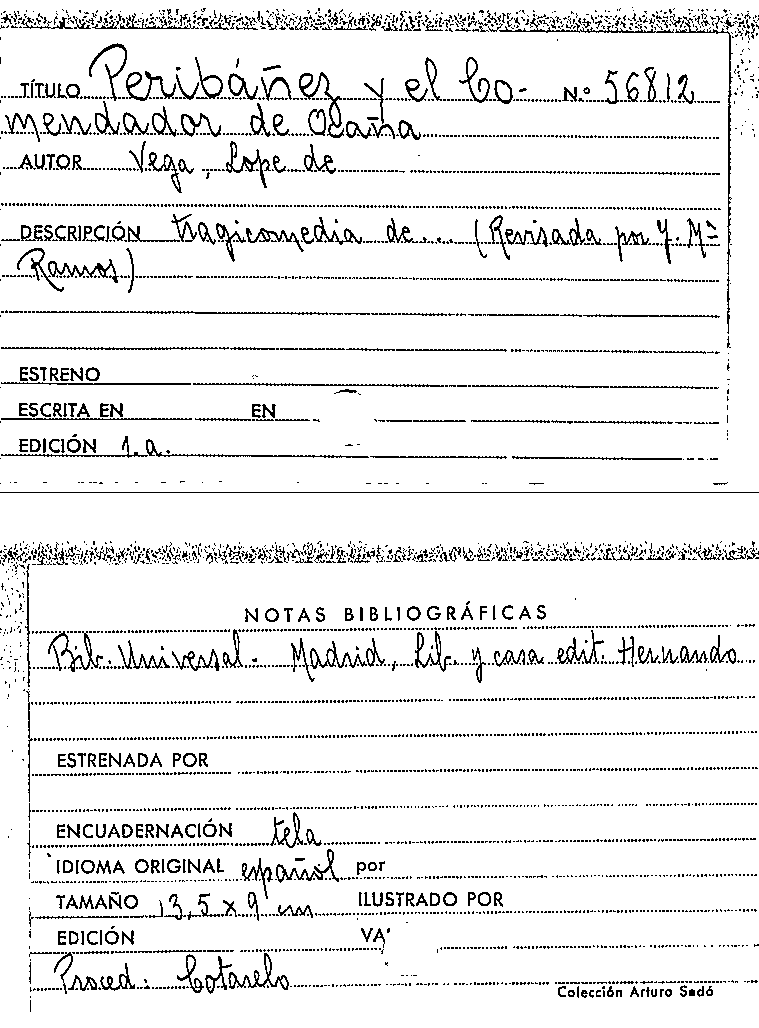 TÍTULO Peribáñez y el Co- N.º 56812
mendador de Ocaña
AUTOR Vega, Lope de
DESCRIPCIÓN tragicomedia de... (Revisada por J. Mª
Ramos)
ESTRENO
ESCRITA EN EN
EDICIÓN 1.a.
NOTAS BIBLIOGRÁFICAS
Bib. Universal. Madrid, Lib. y casa edit. Hernando
ESTRENADA POR
ENCUADERNACIÓN tela
IDIOMA ORIGINAL español por
TAMAÑO 13,5 x 9 cm ILUSTRADO POR
EDICIÓN VA
Proced. Cotarelo
Colección Arturo Sedó